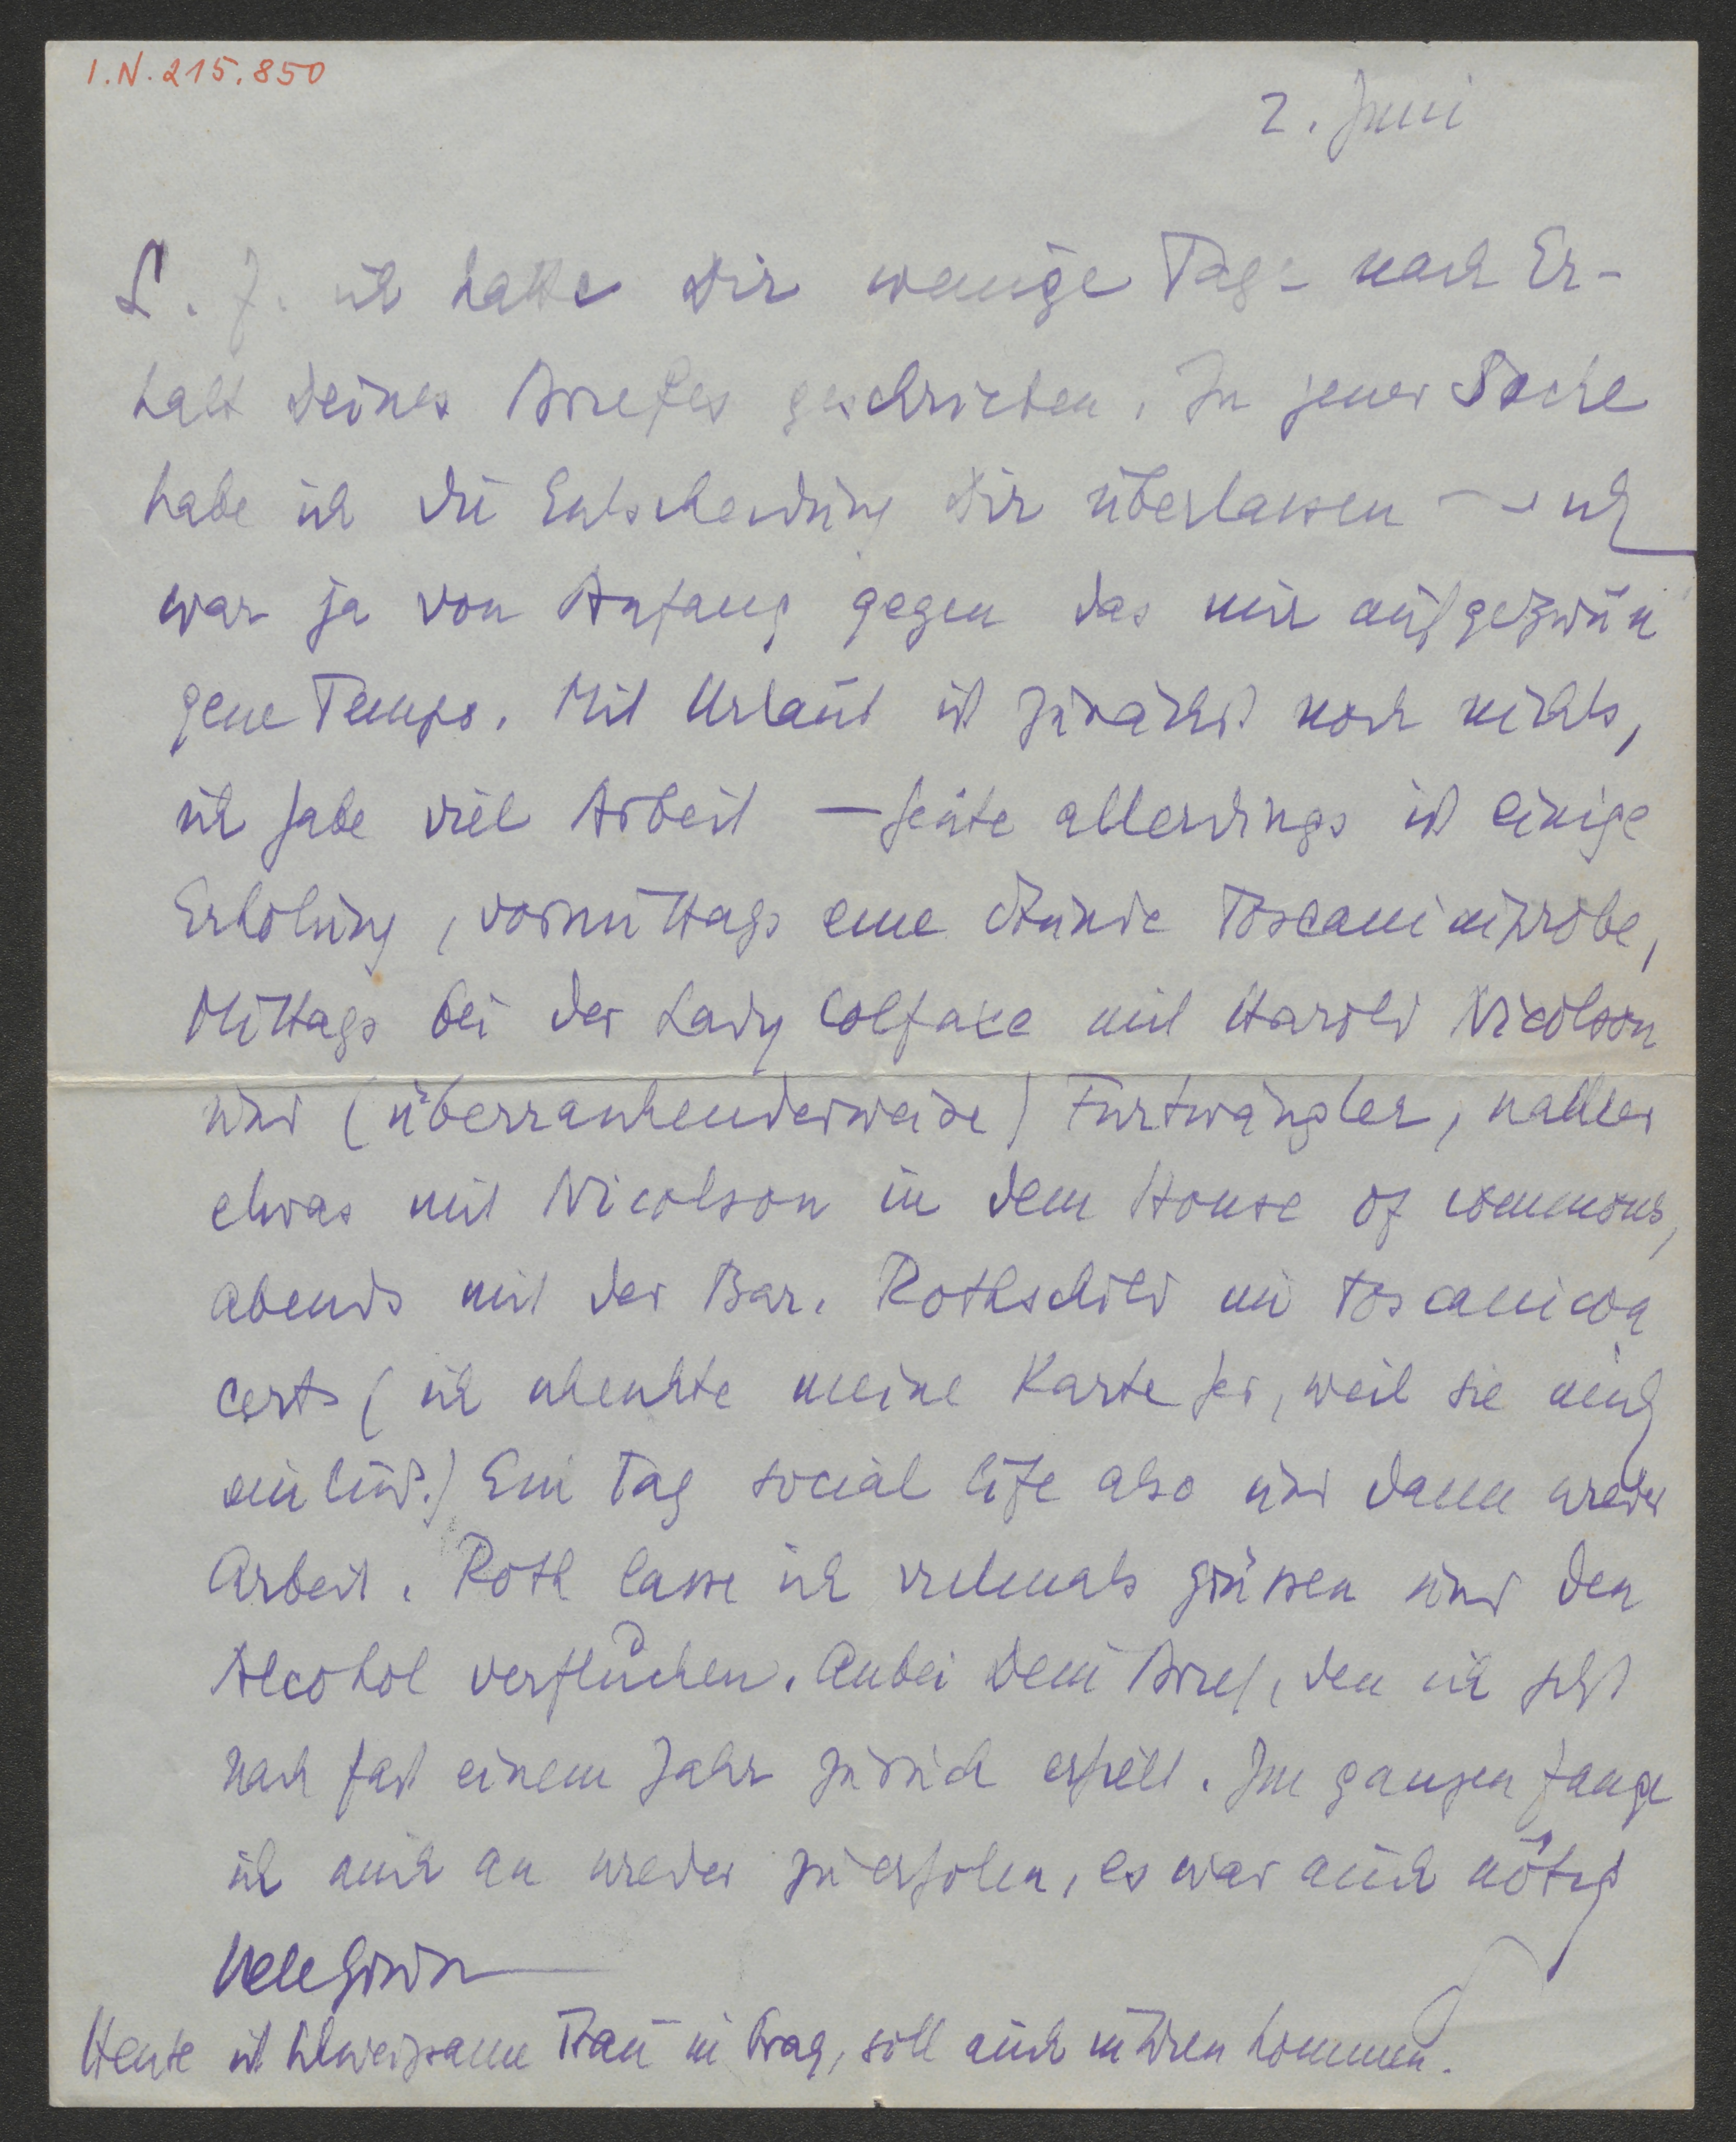 I.N. 215.850
2. Juni
L. F. ich hatte Dir wenige Tage nach Er-
halt Deines Briefes geschrieben. In jener Sache
habe ich die Entscheidung Dir überlassen – ich
war ja von Anfang gegen das mir aufgezwun
gene Tempo. Mit Urlaub ist zunächst noch nichts,
ich habe viel Arbeit – heute allerdings ist einige
Erholung, vormittags eine Stunde Toscaniniprobe,
Mittags bei der Lady Colfaxe mit Harold Nicolson
und (überraschenderweise) Furtwängler, nachher
etwas mit Nicolson in dem House of commons,
abends mit der Bar. Rothschild im Toscanicon
certs (ich schenkte meine Karte her, weil sie mich
einlud.) Ein Tag social life also und dann wieder
Arbeit. Roth lasse ich vielmals grüssen und den
Alcohol verfluchen. Anbei Dein Brief, den ich jetzt
nach fast einem Jahr zurück erhielt. Im ganzen fange
ich mich an wieder zu erholen, es war auch nötig
Stefan
Heute ist schweigsame Frau in Prag, soll auch in Wien kommen.